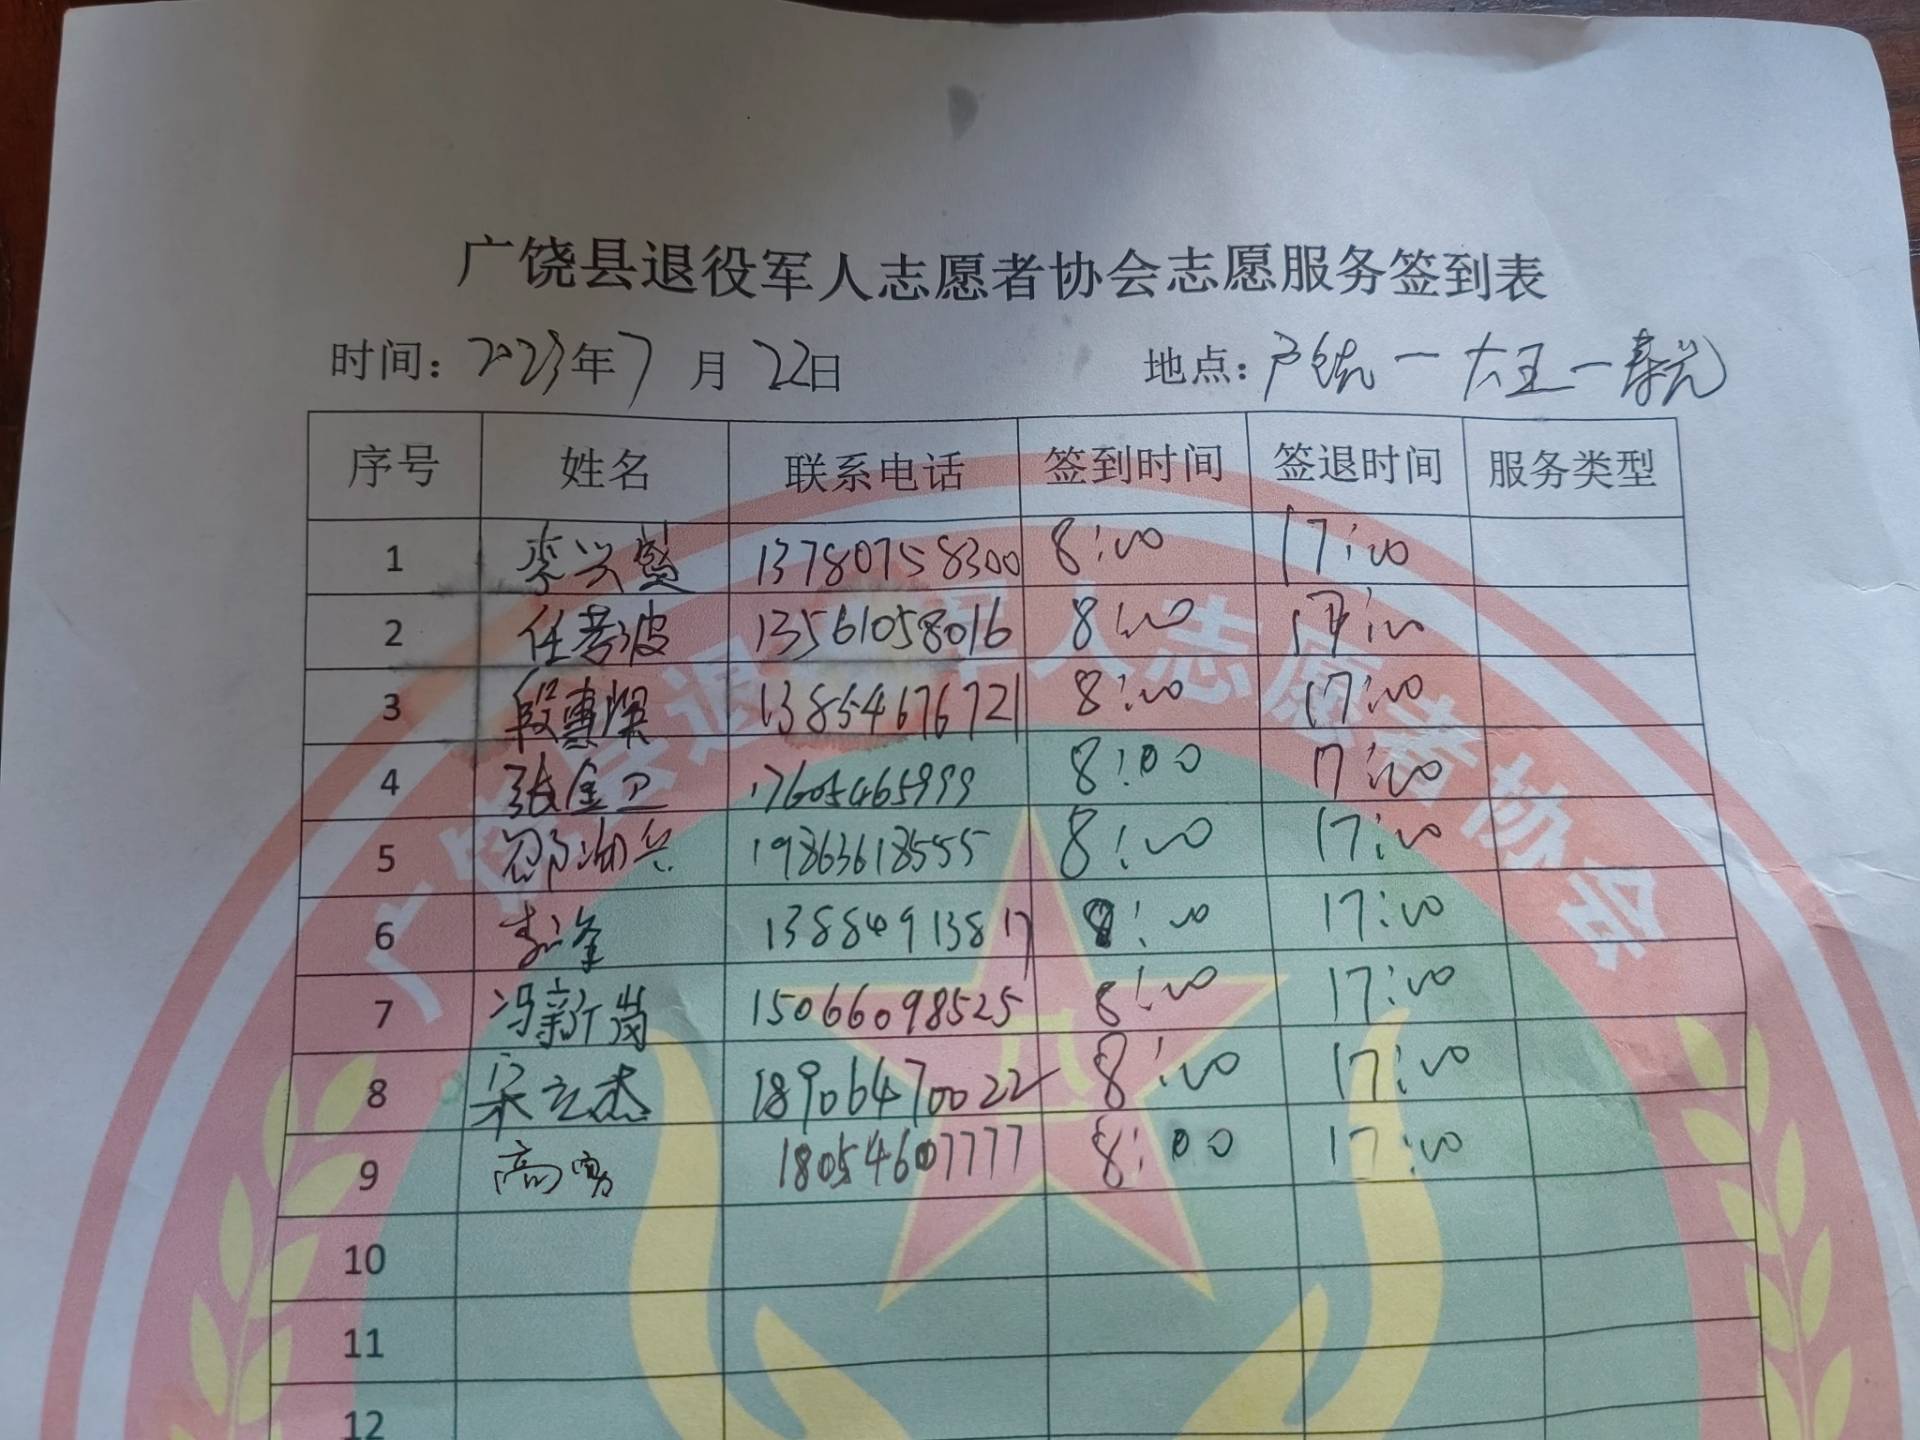 广饶县退役军人志愿者协会志愿服务签到表
时间：2023年7月22日 地点：广饶一大王一寿光
序号 姓名 联系电话 签到时间 签退时间 服务类型
1 李兴盛 13780758300 8:00 17:00
2 任孝波 13561058016 8:00 17:00
3 段惠 13854676721 8:00 17:00
4 张金卫 17605465999 8:00 17:00
5 19863618555 8:00 17:00
6 13884913817 8:00 17:00
7 冯新岗 15066098525 8:00 17:00
8 宋立杰 18906470022 8:00 17:00
9 高勇 18054607777 8:00 17:00
10
11
12
广饶县退役军人志愿者协会
八一